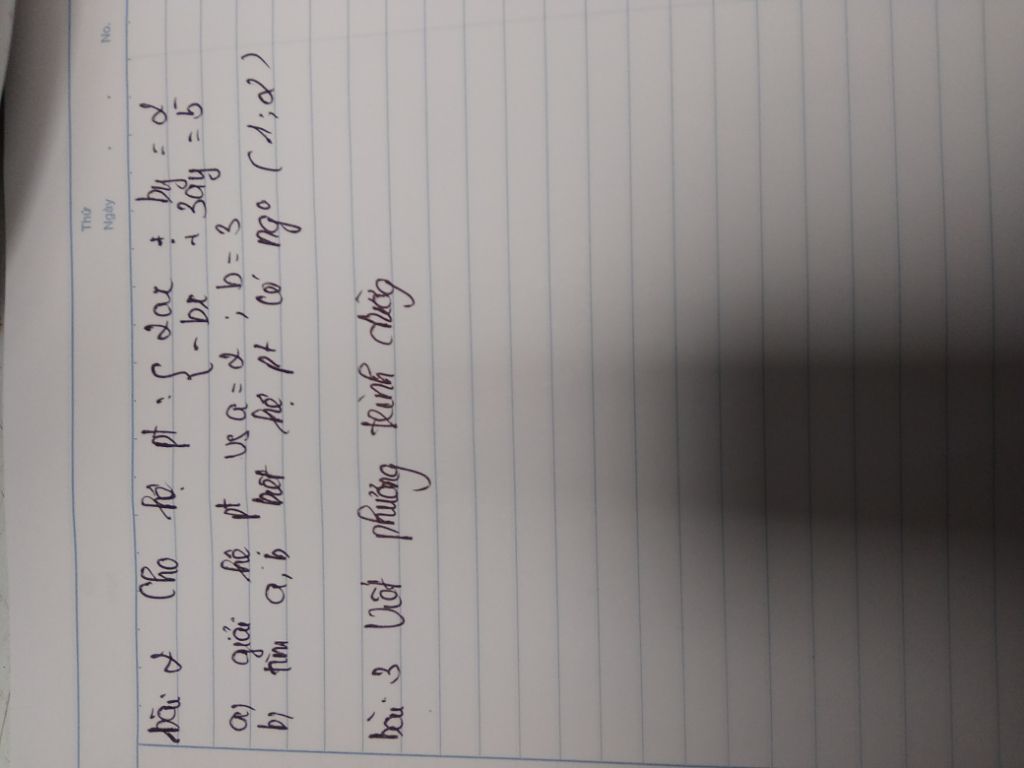 Thứ
Ngày
No.
bài 2 Cho hệ pt : { 2ax + by = 2
- bx + 3ay = 5
a) giải hê pt vs a = 2 ; b = 3
b) tìm a, b biết hệ pt có ngo (1; 2)
bài 3 Viết phương trình đường